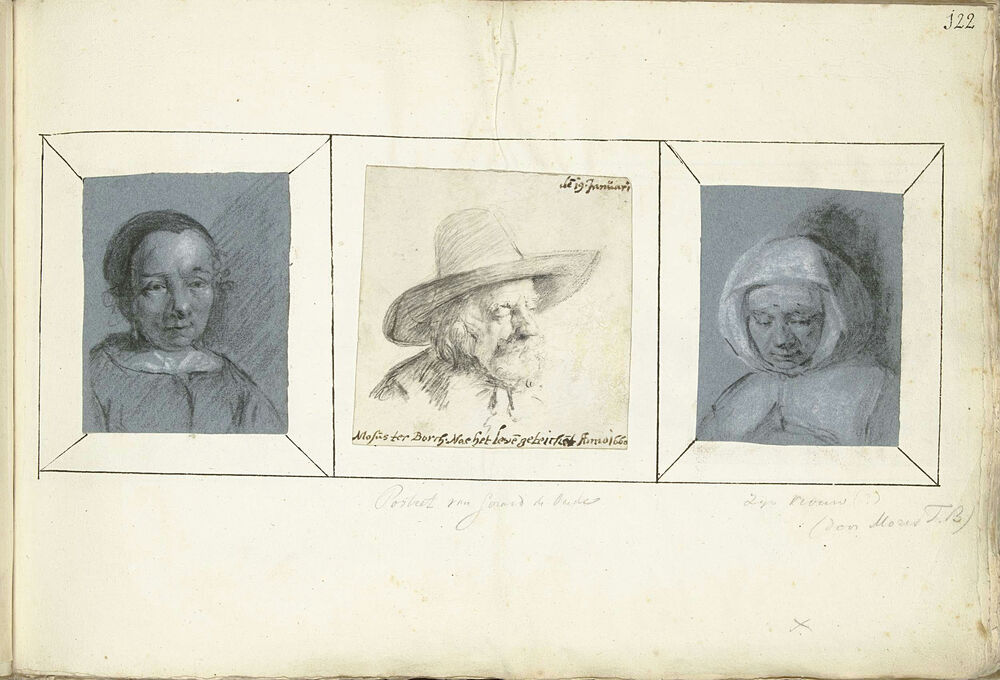 122
dē 19. Januari
Moses ter Borch. Nae het levē geteickēt Anno 1660
Portret van Gerard de Oude
Zijn vrouw (?)
(door Mozes T. B.)